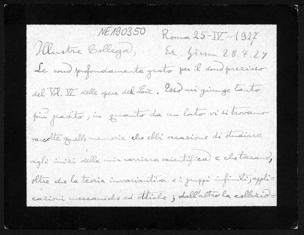 NE190350
Roma 25-IV-1927
Illustre Collega,
Er. Giron 28.4.27
Le sono profondamente grato per il dono prezioso
del Vol. VI delle opere del Lie. Esso mi giunge tanto
più gradito, in quanto da un lato vi si trovano
raccolte quelle memorie che ebbi occasione di studiare
agli inizi della mia carriera scientifica e che trattano,
oltre che la teoria invariantiva e i gruppi infiniti, appli-
cazioni meccaniche ed ottiche; dall'altro la collezio=